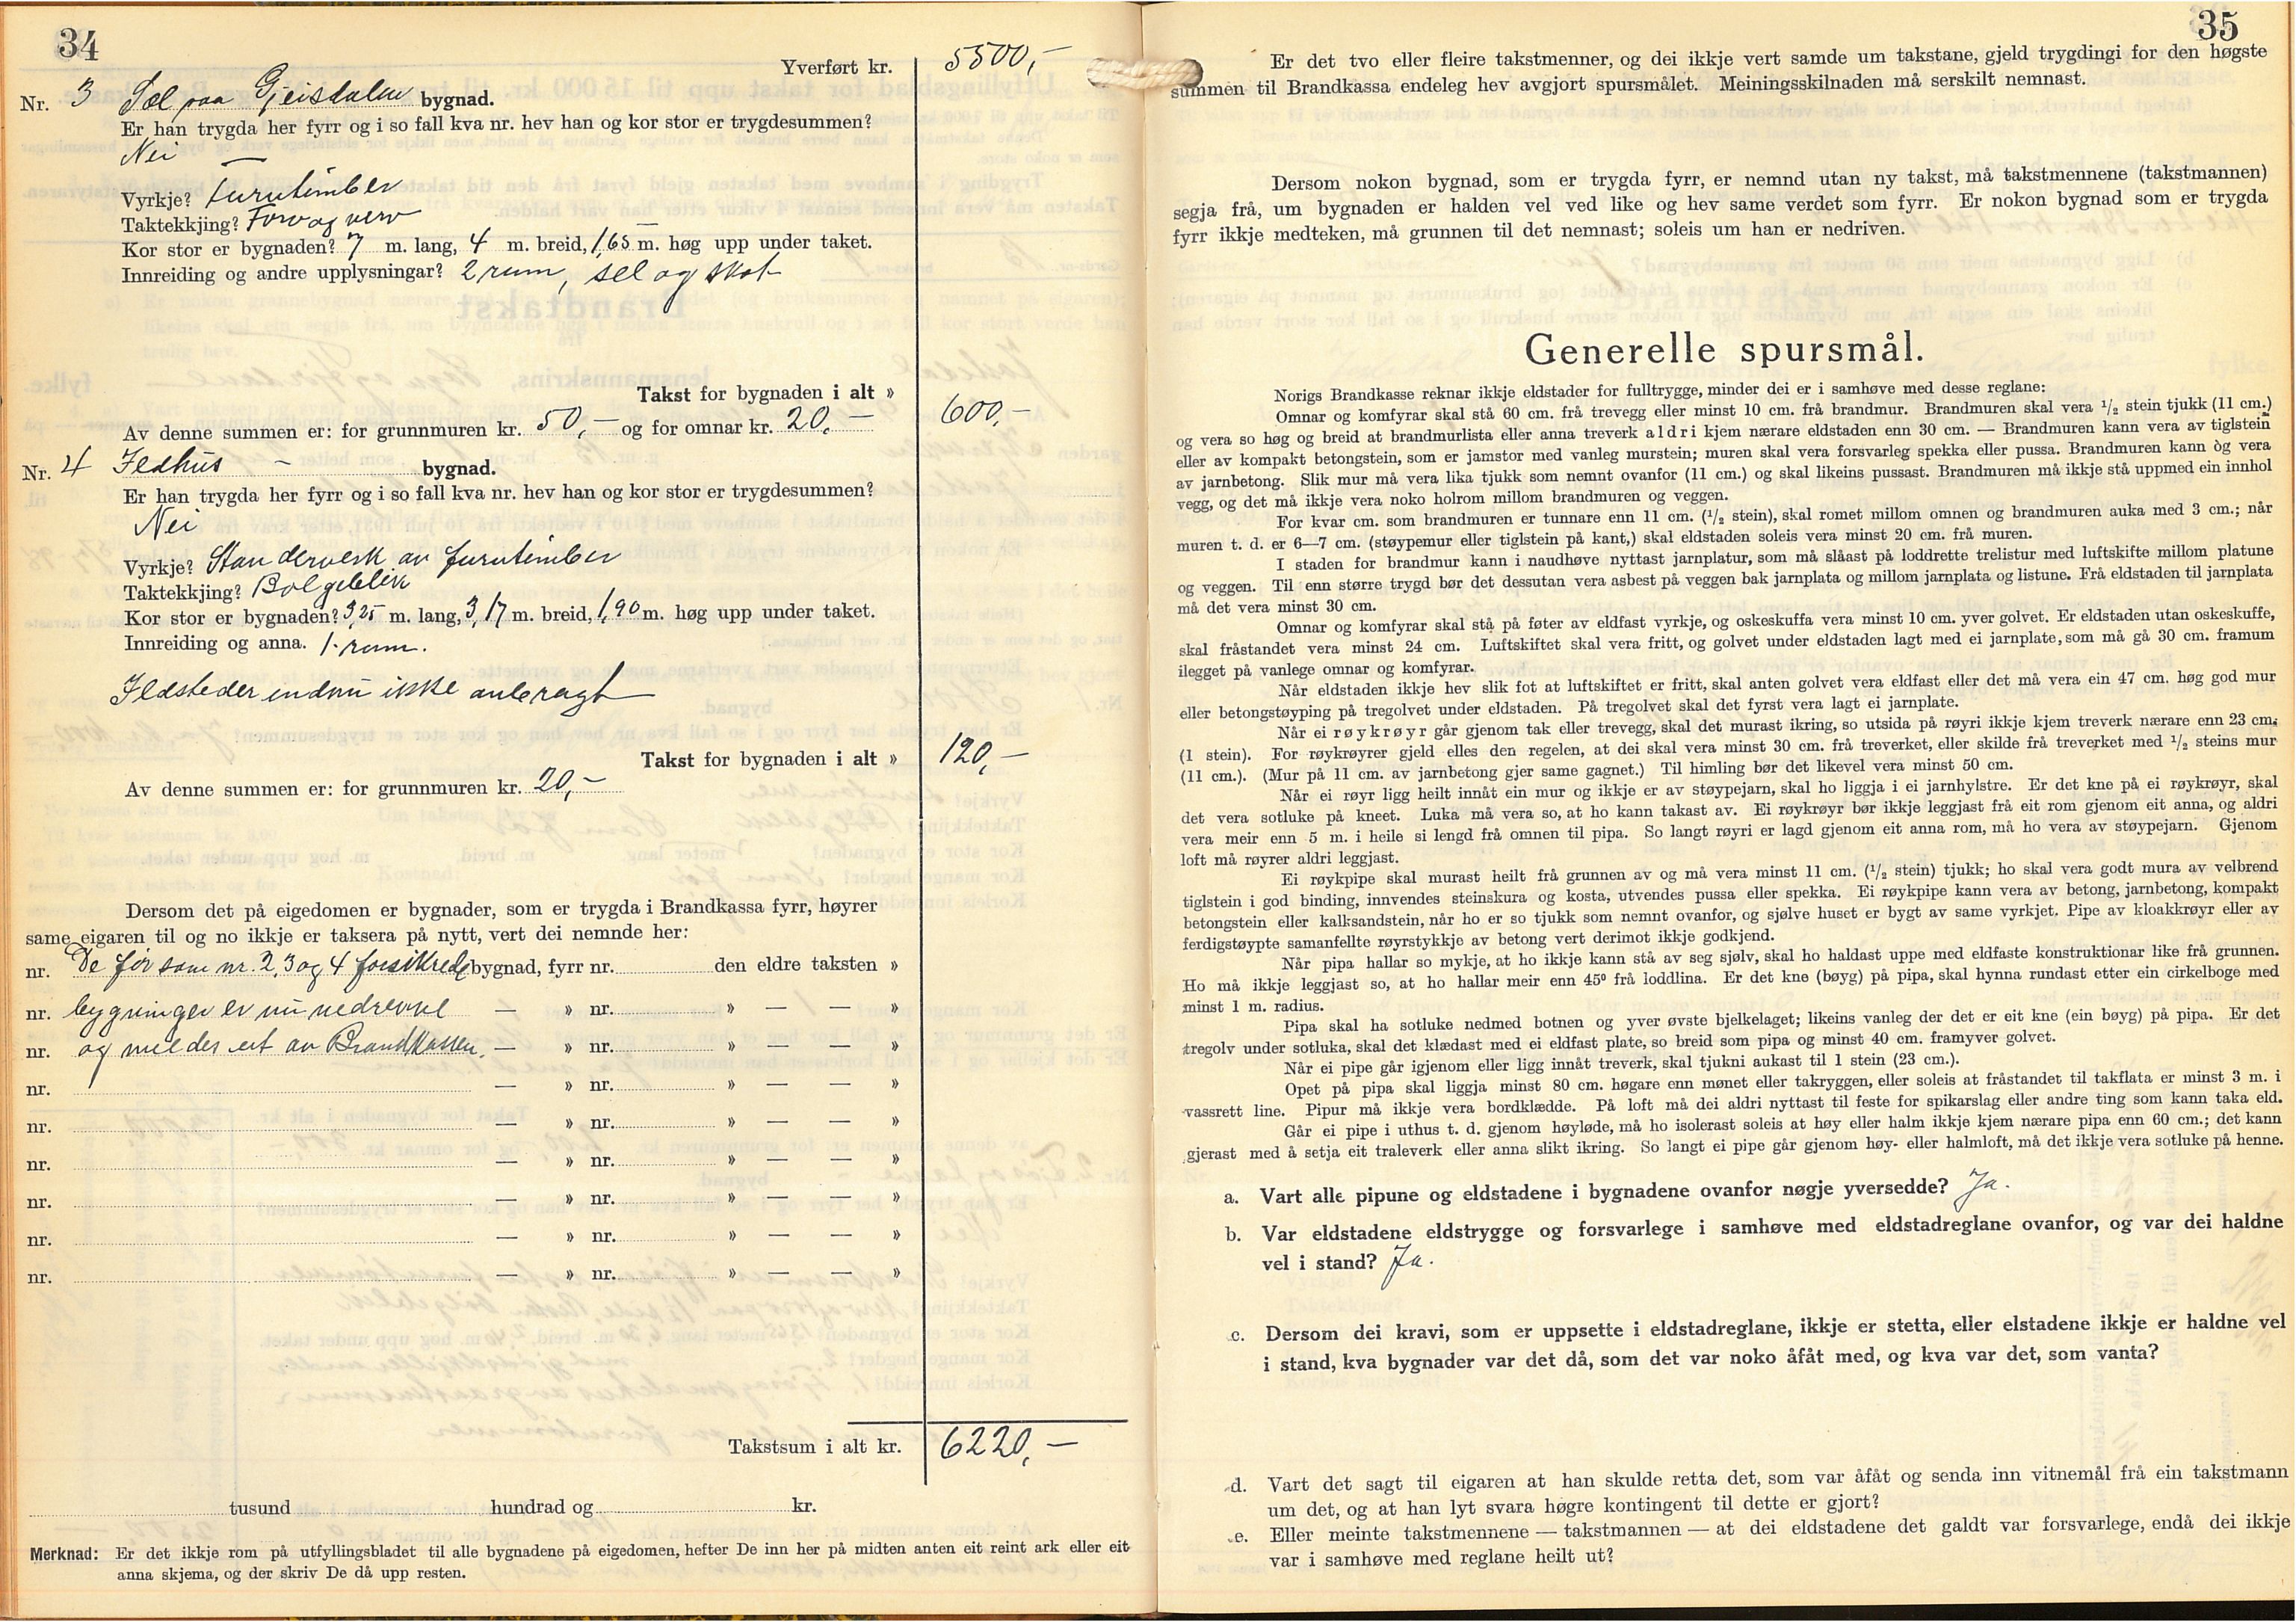 34
Yverført kr. 5500,-
Nr. 3 Sel paa Gjeisdalen bygnad.
Er han trygda her fyrr og i so fall kva nr. hev han og kor stor er trygdesummen?
Nei —
Vyrkje? furutimber
Taktekkjing? Torv og nevr
Kor stor er bygnaden? 7 m. lang, 4 m. breid, 1,65 m. høg upp under taket.
Innreiding og andre upplysningar? 2 rum, sel og skot
Takst for bygnaden i alt » 600,-
Av denne summen er: for grunnmuren kr. 50,- og for omnar kr. 20,-
Nr. 4 Ildhus - bygnad.
Er han trygda her fyrr og i so fall kva nr. hev han og kor stor er trygdesummen?
Nei
Vyrkje? Standerverk av furutimber
Taktekkjing? Bølgeblikk
Kor stor er bygnaden? 3,25 m. lang, 3,17 m. breid, 1,90 m. høg upp under taket.
Innreiding og anna. 1. rum.
Ildsteder endnu ikke anbragt
Takst for bygnaden i alt » 120,-
Av denne summen er: for grunnmuren kr. 20,-
Dersom det på eigedomen er bygnader, som er trygda i Brandkassa fyrr, høyrer
same eigaren til og no ikkje er taksera på nytt, vert dei nemnde her:
nr. De før som nr. 2, 3 og 4 forsikrede bygnad, fyrr nr. den eldre taksten »
nr. bygninger er nu nedrevne — » nr. » — — »
nr. og meldes ut av Brandkassen. — » nr. » — — »
nr. — » nr. » — — »
nr. — » nr. » — — »
nr. — » nr. » — — »
nr. — » nr. » — — »
nr. — » nr. » — — »
nr. — » nr. » — — »
Takstsum i alt kr. 6220,-
tusund hundrad og kr.
Merknad: Er det ikkje rom på utfyllingsbladet til alle bygnadene på eigedomen, hefter De inn her på midten anten eit reint ark eller eit
anna skjema, og der skriv De då upp resten.
35
Er det tvo eller fleire takstmenner, og dei ikkje vert samde um takstane, gjeld trygdingi for den høgste
summen til Brandkassa endeleg hev avgjort spursmålet. Meiningsskilnaden må serskilt nemnast.
Dersom nokon bygnad, som er trygda fyrr, er nemnd utan ny takst, må takstmennene (takstmannen)
segja frå, um bygnaden er halden vel ved like og hev same verdet som fyrr. Er nokon bygnad som er trygda
fyrr ikkje medteken, må grunnen til det nemnast; soleis um han er nedriven.
Generelle spursmål.
Norigs Brandkasse reknar ikkje eldstader for fulltrygge, minder dei er i samhøve med desse reglane:
Omnar og komfyrar skal stå 60 cm. frå trevegg eller minst 10 cm. frå brandmur. Brandmuren skal vera 1/2 stein tjukk (11 cm.)
og vera so høg og breid at brandmurlista eller anna treverk aldri kjem nærare eldstaden enn 30 cm. — Brandmuren kann vera av tiglstein
eller av kompakt betongstein, som er jamstor med vanleg murstein; muren skal vera forsvarleg spekka eller pussa. Brandmuren kann òg vera
av jarnbetong. Slik mur må vera lika tjukk som nemnt ovanfor (11 cm.) og skal likeins pussast. Brandmuren må ikkje stå uppmed ein innhol
vegg, og det må ikkje vera noko holrom millom brandmuren og veggen.
For kvar cm. som brandmuren er tunnare enn 11 cm. (1/2 stein), skal romet millom omnen og brandmuren auka med 3 cm.; når
muren t. d. er 6—7 cm. (støypemur eller tiglstein på kant,) skal eldstaden soleis vera minst 20 cm. frå muren.
I staden for brandmur kann i naudhøve nyttast jarnplatur, som må slåast på loddrette trelistur med luftskifte millom platune
og veggen. Til enn større trygd bør det dessutan vera asbest på veggen bak jarnplata og millom jarnplata og listune. Frå eldstaden til jarnplata
må det vera minst 30 cm.
Omnar og komfyrar skal stå på føter av eldfast vyrkje, og oskeskuffa vera minst 10 cm. yver golvet. Er eldstaden utan oskeskuffe,
skal fråstandet vera minst 24 cm. Luftskiftet skal vera fritt, og golvet under eldstaden lagt med ei jarnplate, som må gå 30 cm. framum
ilegget på vanlege omnar og komfyrar.
Når eldstaden ikkje hev slik fot at luftskiftet er fritt, skal anten golvet vera eldfast eller det må vera ein 47 cm. høg god mur
eller betongstøyping på tregolvet under eldstaden. På tregolvet skal det fyrst vera lagt ei jarnplate.
Når ei røykrøyr går gjenom tak eller trevegg, skal det murast ikring, so utsida på røyri ikkje kjem treverk nærare enn 23 cm.
(1 stein). For røykrøyrer gjeld elles den regelen, at dei skal vera minst 30 cm. frå treverket, eller skilde frå treverket med 1/2 steins mur
(11 cm.). (Mur på 11 cm. av jarnbetong gjer same gagnet.) Til himling bør det likevel vera minst 50 cm.
Når ei røyr ligg heilt innåt ein mur og ikkje er av støypejarn, skal ho liggja i ei jarnhylstre. Er det kne på ei røykrøyr, skal
det vera sotluke på kneet. Luka må vera so, at ho kann takast av. Ei røykrøyr bør ikkje leggjast frå eit rom gjenom eit anna, og aldri
vera meir enn 5 m. i heile si lengd frå omnen til pipa. So langt røyri er lagd gjenom eit anna rom, må ho vera av støypejarn. Gjenom
loft må røyrer aldri leggjast.
Ei røykpipe skal murast heilt frå grunnen av og må vera minst 11 cm. (1/2 stein) tjukk; ho skal vera godt mura av velbrend
tiglstein i god binding, innvendes steinskura og kosta, utvendes pussa eller spekka. Ei røykpipe kann vera av betong, jarnbetong, kompakt
betongstein eller kalksandstein, når ho er so tjukk som nemnt ovanfor, og sjølve huset er bygt av same vyrkjet. Pipe av kloakkrøyr eller av
ferdigstøypte samanfellte røyrstykkje av betong vert derimot ikkje godkjend.
Når pipa hallar so mykje, at ho ikkje kann stå av seg sjølv, skal ho haldast uppe med eldfaste konstruktionar like frå grunnen.
Ho må ikkje leggjast so, at ho hallar meir enn 45° frå loddlina. Er det kne (bøyg) på pipa, skal hynna rundast etter ein cirkelboge med
minst 1 m. radius.
Pipa skal ha sotluke nedmed botnen og yver øvste bjelkelaget; likeins vanleg der det er eit kne (ein bøyg) på pipa. Er det
tregolv under sotluka, skal det klædast med ei eldfast plate, so breid som pipa og minst 40 cm. framyver golvet.
Når ei pipe går igjenom eller ligg innåt treverk, skal tjukni aukast til 1 stein (23 cm.).
Opet på pipa skal liggja minst 80 cm. høgare enn mønet eller takryggen, eller soleis at fråstandet til takflata er minst 3 m. i
vassrett line. Pipur må ikkje vera bordklædde. På loft må dei aldri nyttast til feste for spikarslag eller andre ting som kann taka eld.
Går ei pipe i uthus t. d. gjenom høyløde, må ho isolerast soleis at høy eller halm ikkje kjem nærare pipa enn 60 cm.; det kann
gjerast med å setja eit traleverk eller anna slikt ikring. So langt ei pipe går gjenom høy- eller halmloft, må det ikkje vera sotluke på henne.
a. Vart alle pipune og eldstadene i bygnadene ovanfor nøgje yversedde? Ja.
b. Var eldstadene eldstrygge og forsvarlege i samhøve med eldstadreglane ovanfor, og var dei haldne
vel i stand? Ja.
c. Dersom dei kravi, som er uppsette i eldstadreglane, ikkje er stetta, eller elstadene ikkje er haldne vel
i stand, kva bygnader var det då, som det var noko åfåt med, og kva var det, som vanta?
d. Vart det sagt til eigaren at han skulde retta det, som var åfåt og senda inn vitnemål frå ein takstmann
um det, og at han lyt svara høgre kontingent til dette er gjort?
e. Eller meinte takstmennene — takstmannen — at dei eldstadene det galdt var forsvarlege, endå dei ikkje
var i samhøve med reglane heilt ut?